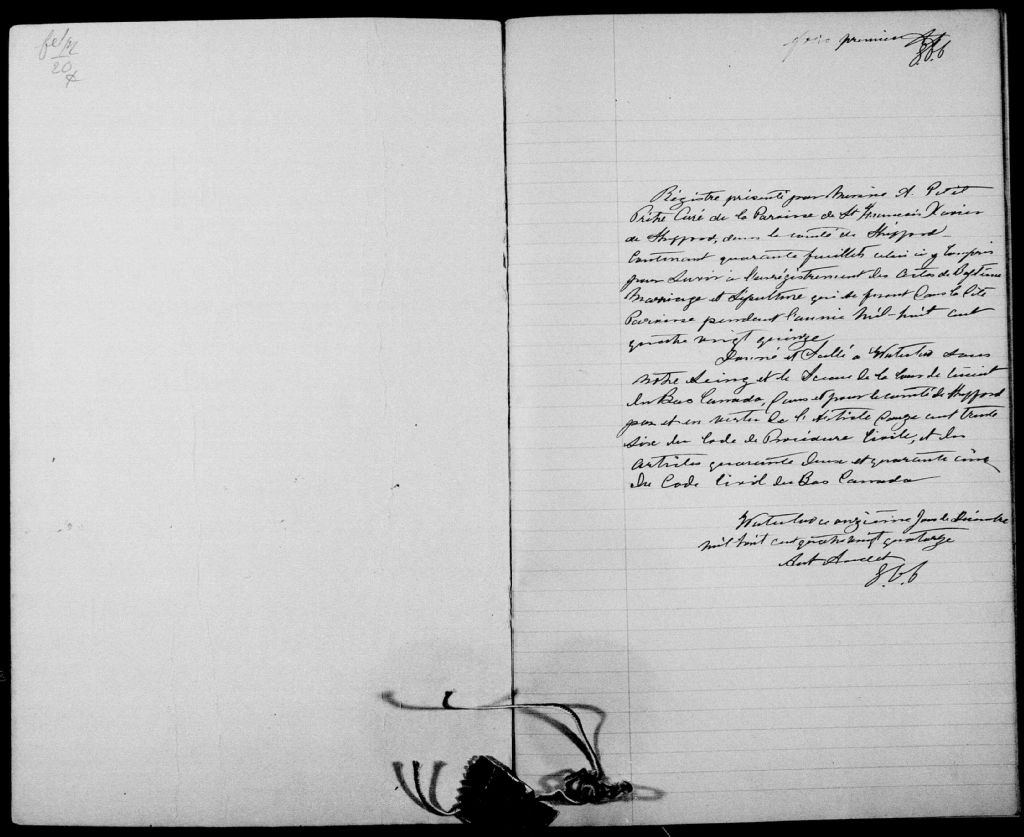 fel 12
20
folio premier
Régistre présenté par Messire A. Petit
Prêtre Curé de la Paroisse de St Francois Xavier
de Shefford, dans le comté de Shefford
Contenant quarante feuillets celui ci y Compris
pour Servir à l'enrégistrement des actes de Baptême
Marriage et Sépulture qui se feront dans la dite
Paroisse pendant l'année Mil-huit cent
quatre vingt quinze
Donné et Scellé à Waterloo Sous
notre Seing et le Sceau de la Cour de Circuit
du Bas Canada, dans et pour le comté de Shefford
par et en vertu de l'Article douze cent trente
six du Code de Procédure Civile, et des
articles quarante deux et quarante cinq
du Code Civil du Bas Canada
Waterloo ce onzième Jour de Décembre
Mil huit cent quatre vingt quatorze